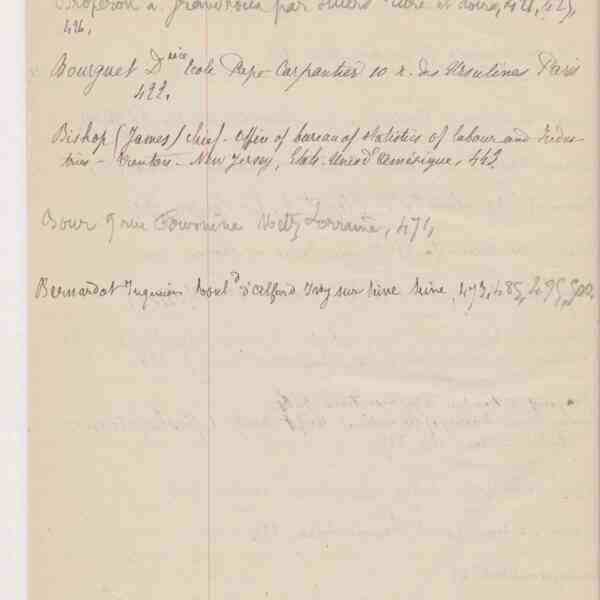 Broperon à Grandvoila par Suers Indre et Loire, 421, 425,
426,
Bourguet Dtrice Ecole Pape Carpantier 10 r. des Ursulines Paris
422.
Bishop (James) chief - Office of bureau of statistics of labour and Indus-
tries - Trenton - New Jersey, Etats-Unis d'Amérique, 443.
Bour 9 rue Metz Lorraine, 471,
Bernardot Ingénieur boul d d'Alfort Ivry sur Seine Seine, 473, 485, 495, 502,